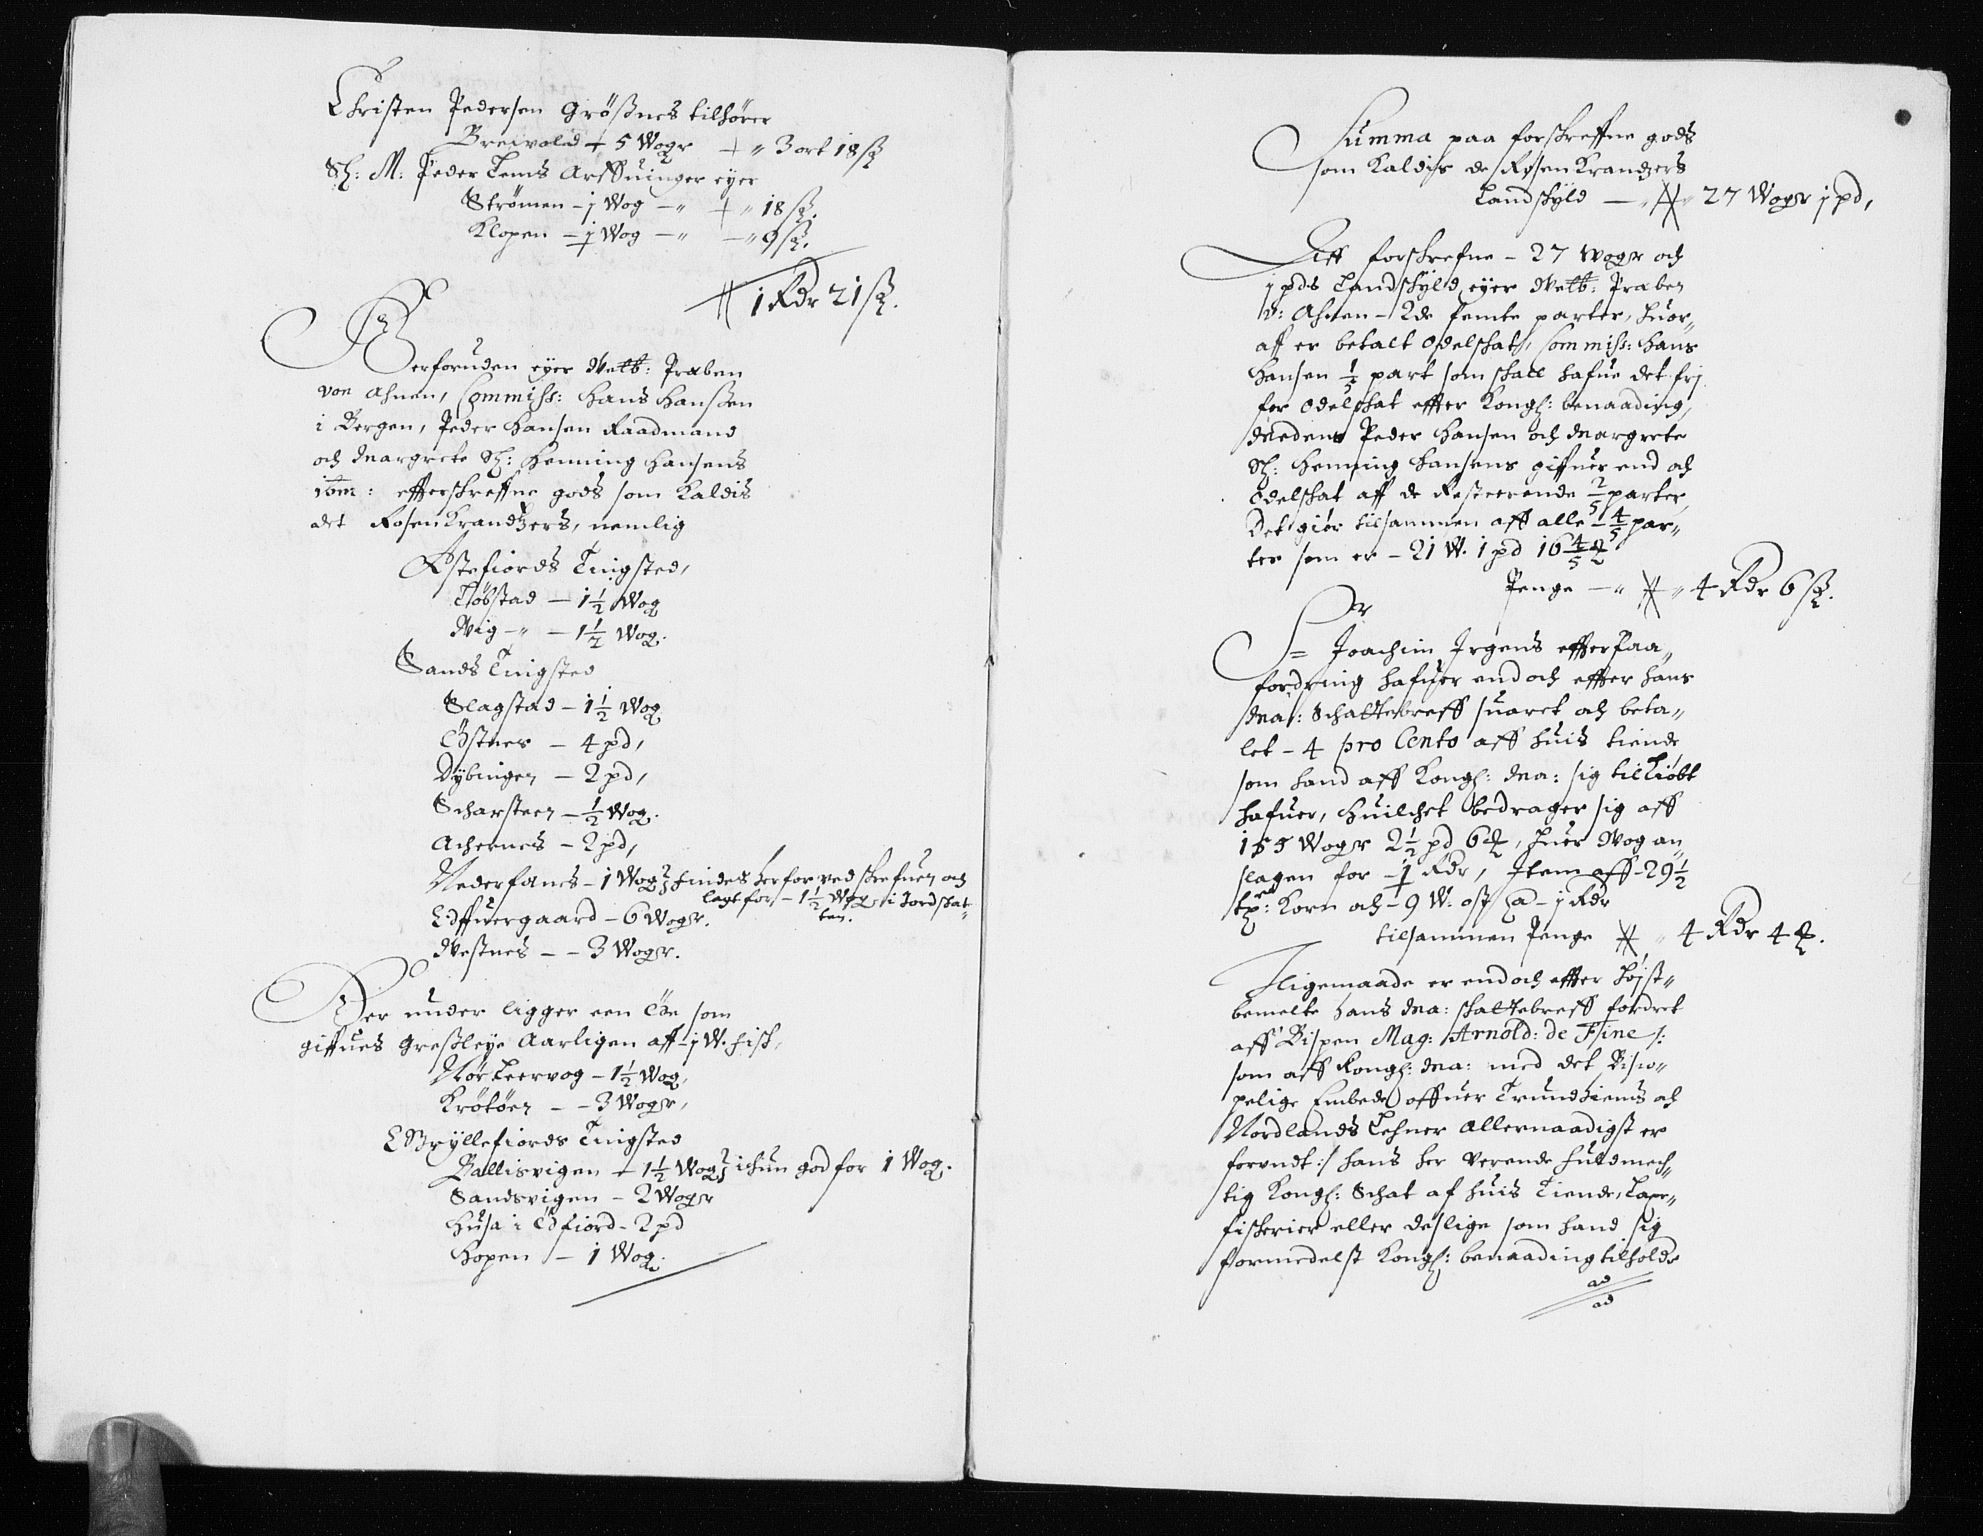 Christen Pedersen Größnes tilhører
Breivold + 5 Wogr + „ 3 ort 18 ß
Sl: M: Peder Lems Arffuinger eyer
Strömen – j Wog – „ + „ 18 ß.
Klopen – j Wog – „ – „ 9 ß.
1 Rdr 21 ß.
Derforuden eyer Welb: Præben
von Ahnen, Commiss: Hans Hanssen
i Bergen, Peder Hansen Raadmand
och Margrete Sl: Henning Hansens
effterschreffne gods som Kaldis
det RosenKrandtzers, nemlig
Astefiords Tingsted,
Töbstad – 1 1/2 Wog
Wig – „ – 1 1/2 Wog.
Sands Tingsted
Slagstad – 1 1/2 Wog
Östnes – 4 pd,
Dybingen – 2 pd,
Scharsteen – 1/2 Wog.
Achernes – 2 pd,
Nederfanes – 1 Wog findes herfor ved schrefuen och
lagt for – 1 1/2 Wog i Jordschat-
ten.
Edffuergaard – 6 Wogr.
Westnes – – 3 Wogr.
Der under ligger een Öe som
giffues Greßleye Aarligen aff – j W. fisk,
Nör Leervog – 1 1/2 Wog,
Krötöen – – 3 Wogr,
Gryllefiords Tingsted
Ballisvigen + 1 1/2 Wog ichun god for 1 Wog.
Sandsvigen – 2 Wogr
Husa i Ödfiord – 2 pd
Hopen – 1 Wog.
Summa paa forschreffne gods
som Kaldis de RosenKrandzers
Landschyld – „ 27 Wogr j pd,
Aff forschrefne – 27 Wogr och
j pds Landschyld eyer Welb: Præben
v: Ahnen – 2de femte parter, huor„
aff er betalt Odelschat, Commiss: Hans
Hansen 1/5 part som schall hafue det fri
for Odelschat effter Kongl: benaading,
Medens Peder Hansen och Margrete
Sl: Henning Hansens giffuer end och
Odelschat aff de Resteerende 2/5 parter,
Det giör tilsammen aff alle – 4/5 par„
ter som er – 21 W. 1 pd 16 4/5 ℔
Penge – „ 4 Rdr 6 ß.
Sr Joachim Irgens effter paa„
fordring hafuer end och effter hans
Ma: Schattebreff suaret och beta„
let – 4 pro Cento aff huis tiende
som hand aff Kongl: Ma: sig tilkiöbt
hafuer, huilchet bedrager sig aff
155 Wogr 2 1/2 pd 6 ℔, huer Wog an„
slagen for – 1 Rdr, Item aff – 29 1/2
Korn och – 9 W. ost a – j Rdr
tilsammen Penge 4 Rdr 4 ß.
Iligemaade er end och effter höjst„
bemelte Hans Ma: schattebreff fordret
aff Bispen Mag: Arnold: de Fine /:
som aff Kongl: Ma: med det Bisco„
pelige Embede offuer Trundhiems och
Nordlands Lehner allernaadigst er
forundt :/ hans her verende fuldmech„
tig Kongl: Schat af huis Tiende, Laxe„
fischerier eller deslige som hand sig
formedelst Kongl: benaading tilholde
ad
ad